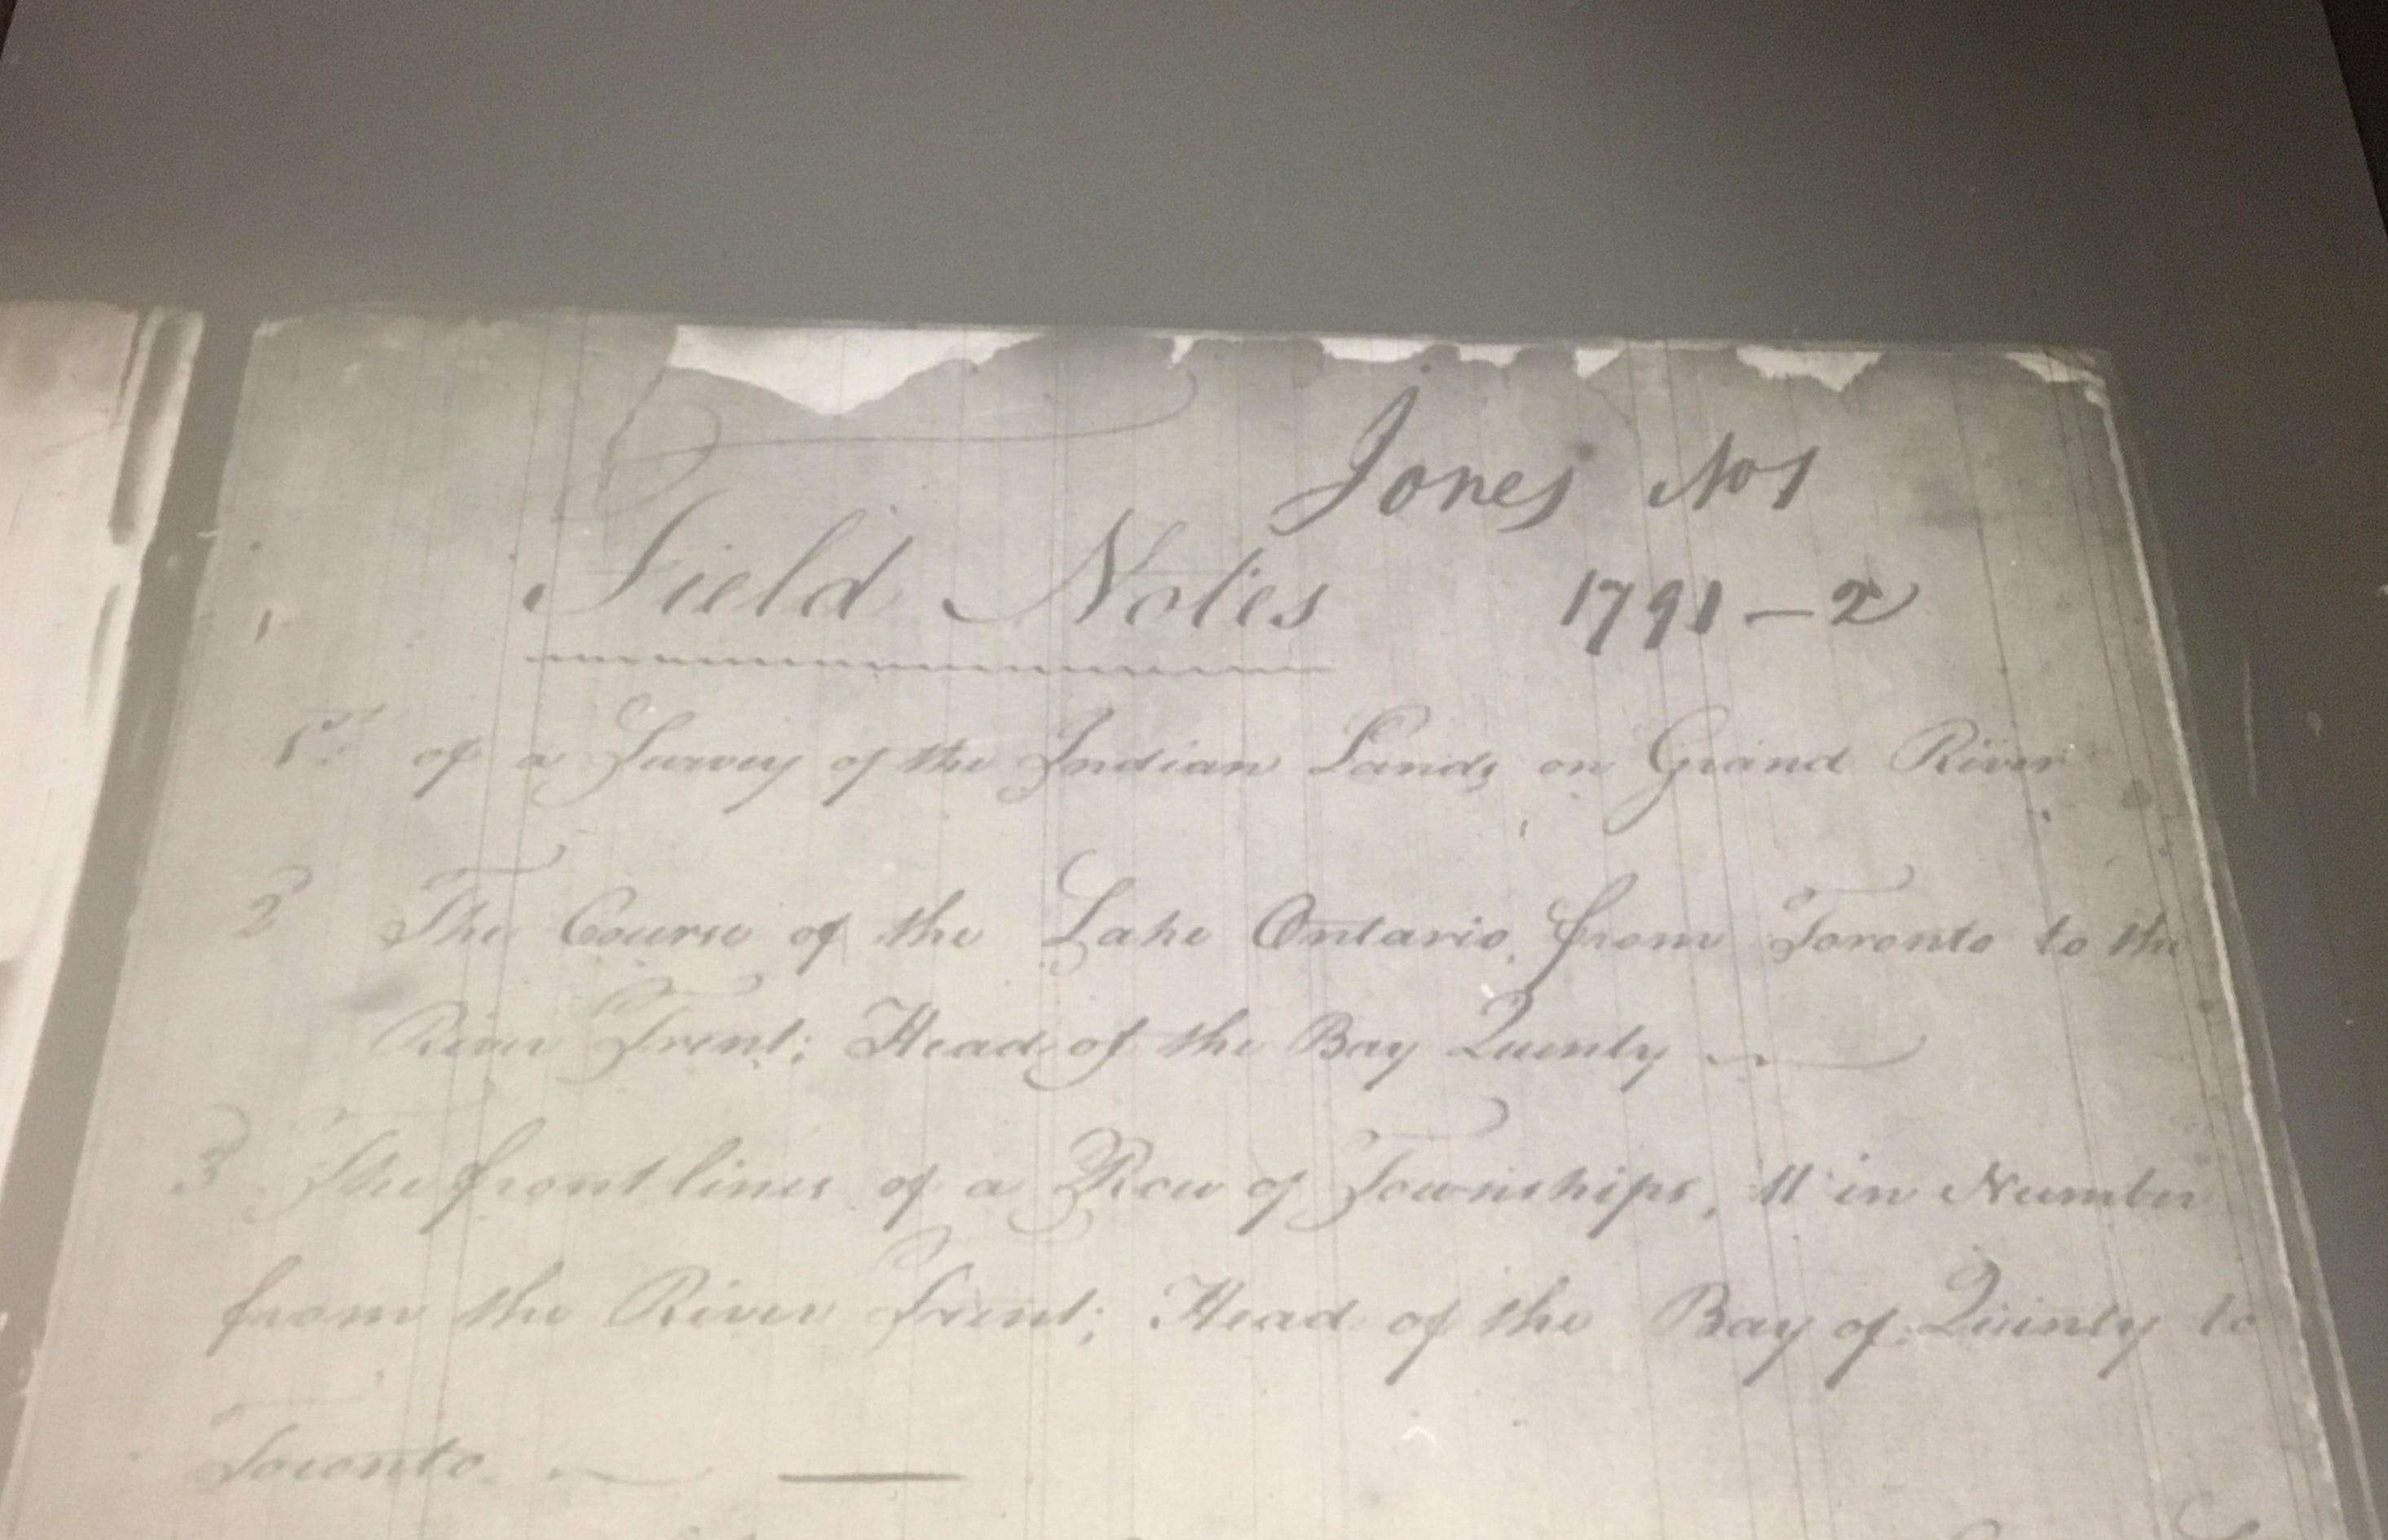 Jones No 1
Field Notes 1791-2
1st of a Survey of the Indian Lands on Grand River
2 The Course of the Lake Ontario, from Toronto to the
River Trent; Head of the Bay Quinty
3 The front lines of a Row of Townships, 11 in Number
from the River Trent; Head of the Bay of Quinty to
Toronto.